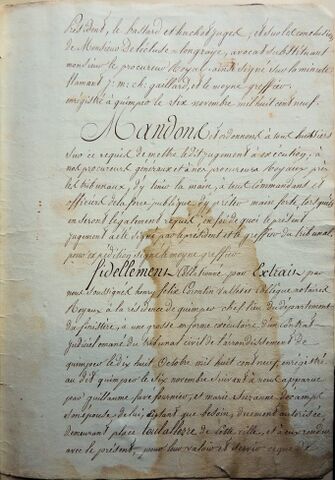 président, le bastard et huchet juges, et sur les conclusions
de Monsieur Delécluse Longraye, avocat substituant
monsieur le procureur Royal ainsi signé sur la minute
flamant P. m. ch. gaillard, et le moyne greffier
enrégistré à quimper le six novembre mil huit cent neuf.
Mandons et ordonnons à tous huissiers
sur ce requis de mettre ledit jugement à exécution, à
nos procureurs généraux et à nos procureurs Royaux près
les tribunaux, d'y tenir la main, à tous commandants et
officiers de la force publique, d'y prêter main forte, lorsqu'ils
en seront légalement requis, en foi de quoi le présent
jugement a été signé par le président et le greffier du tribunal,
pour expédition signé le moyne greffier
fidellement Collationné par Extrait par
nous soussignés henry felix Corentin et collègue notaires
Royaux à la résidence de quimper chef lieu du département
du finistère, à une grosse en forme exécutoire d'un contrat
judiciel émané du tribunal civil de l'arrondissement de
quimper le dix huit Octobre mil huit cent neuf, enrégistré
au dit quimper le six novembre suivant à nous apparue
par guillaume fournier, et marie suzanne decamps
son épouse de lui, autant que besoin, duement autorisée
demeurant place toulalaer de cette ville, et à eux rendue
avec le présent, pour leur valoir et servir ce que de